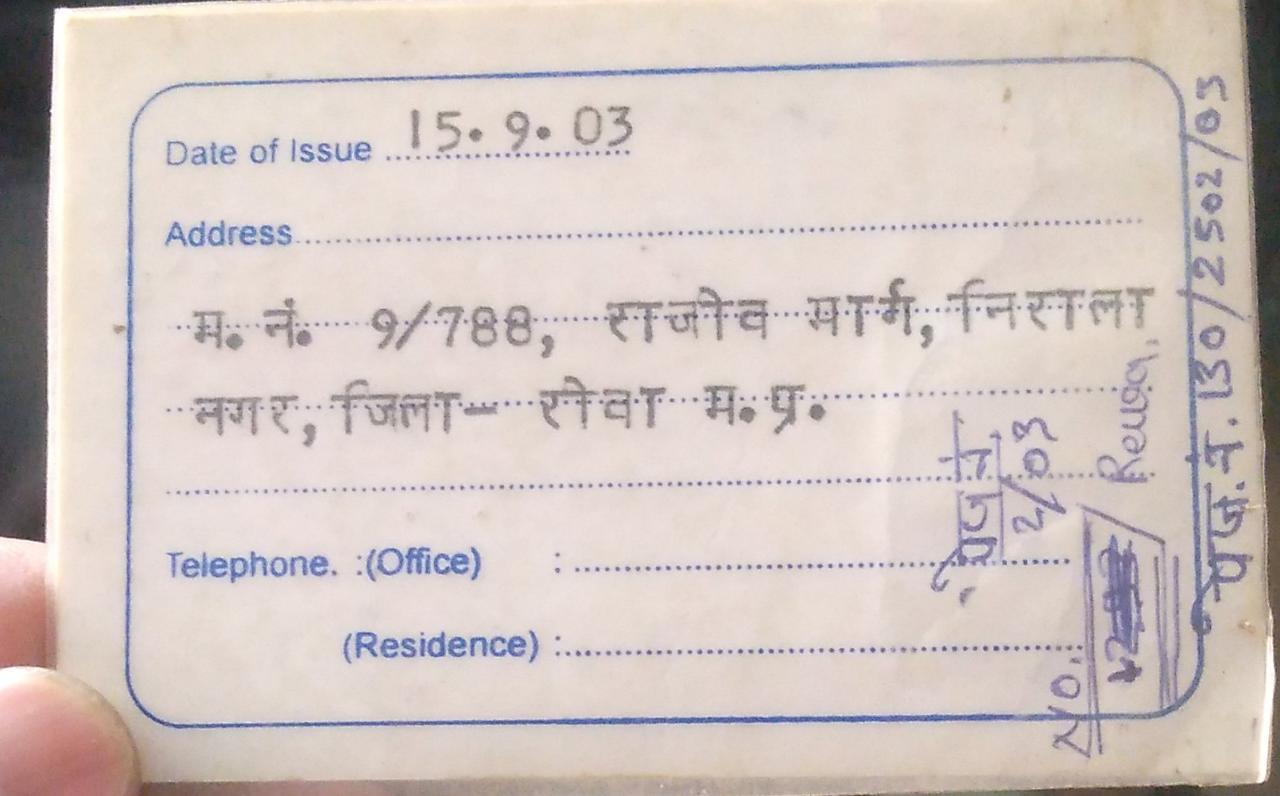 Date of Issue 15.9.03
Address
म. नं. 9/788, राजीव मार्ग, निराला
नगर, जिला- रीवा म.प्र.
Telephone. :(Office) :
(Residence) :
2/03
No.
Rewa.
पंज.न. 130/2502/03